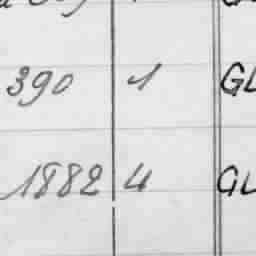 390 1 GL
1882 4 GL